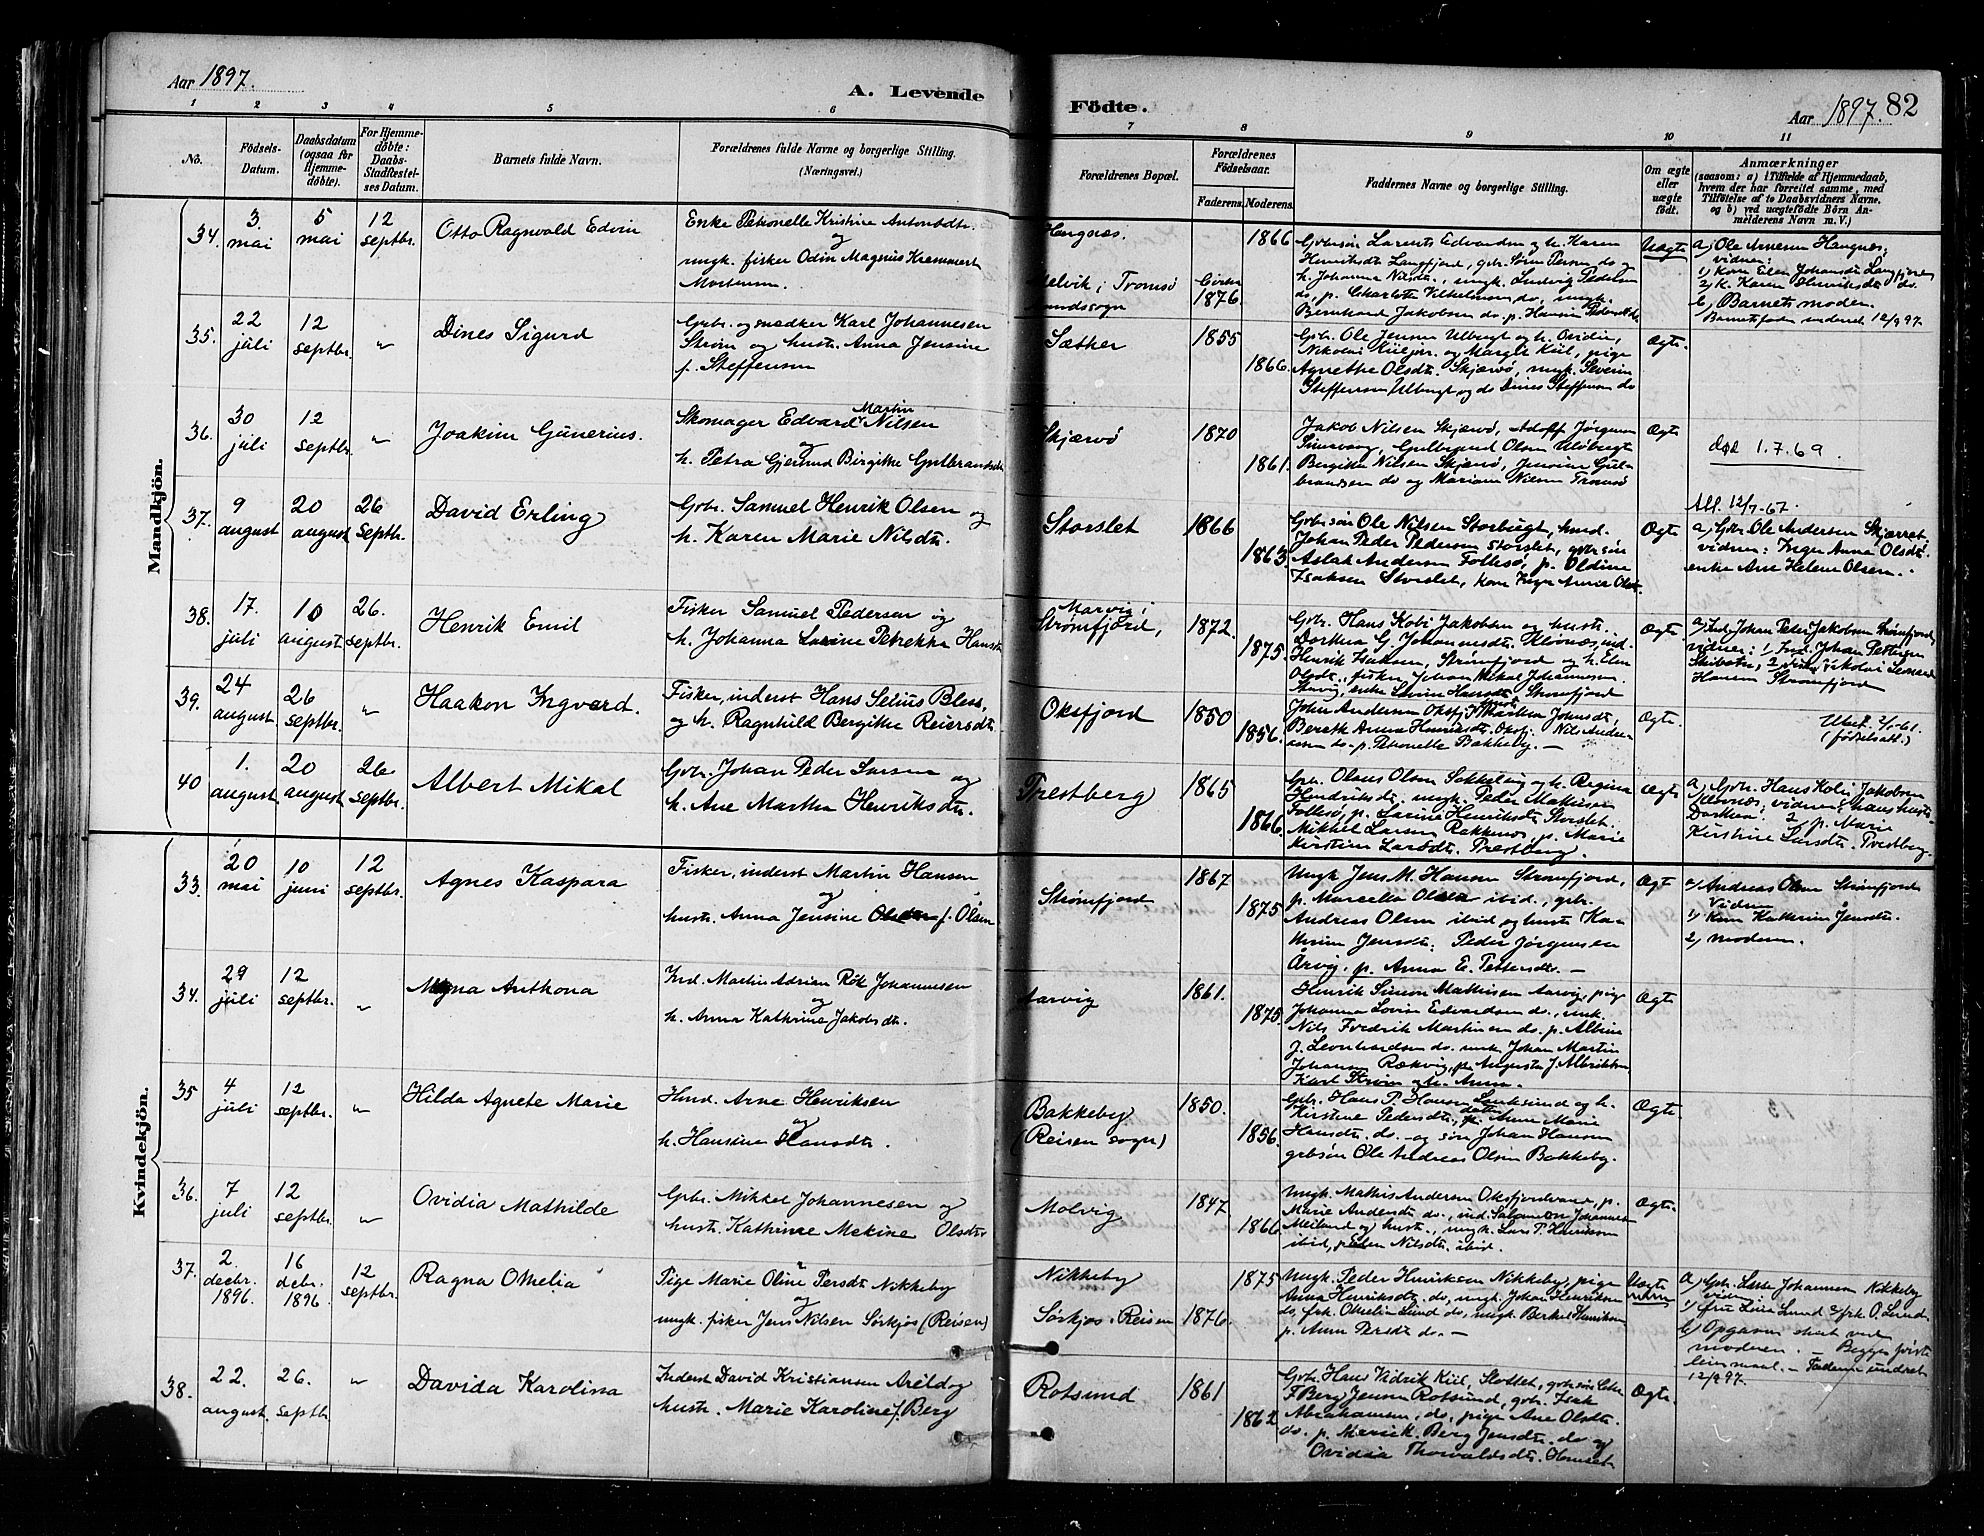 Aar 1897.
A. Levende
Födte.
Aar 1897. 82
1 2 3 4 5 6 7 8 9 10 11
No.
Födsels-Datum.
Daabsdatum (ogsaa for Hjemme-döbte).
For Hjemme-döbte: Daabs-Stadfæstel-ses Datum.
Barnets fulde Navn.
Forældrenes fulde Navne og borgerlige Stilling.
(Næringsvei.)
Forældrenes Bopæl.
Forældrenes Födselsaar.
Faderens. Moderens.
Faddernes Navne og borgerlige Stilling.
Om ægte eller uægte födt.
Anmærkninger
(saasom: a) i Tilfælde af Hjemmedaab,
hvem der har forrettet samme, med
Tilföielse af to Daabsvidners Navne.
og b) ved uægtefödte Börn An-
melderens Navn m. V.)
Mandkjön.
34. 3. mai 5 mai 12 septbr.
Otto Ragnvald Edvin
Enke Petronelle Kristine Antonsdtr.
og
ungk. fisker Odin Magnus
Mortensen.
Haugnæs.
i Tromsö
landssogn
1866
Cirka
1876.
Gbrsön Larents Edvardsen og h. Karen
Henriksdtr. Langfjord, gbr. Sören Persen do og
h. Johanna Nilsdtr., ungk. Ludvig Pedersen
do, p. Charlotte Vilhelmsen do, ungk.
Bernhard Jakobsen do. p. Hansine
Uægte
a) Ole Arnesen Haugnæs;
vidner:
1) Kone Elen Johansdtr. Langfjord
2) K. Karen Henriksdtr. do.
b) Barnets moder.
12/9 97.
35. 22 juli 12 septbr. "
Dines Sigurd
Gbr. og snedker Karl Johannesen
Ström og hustr. Anna Jensine
f. Steffensen
Sæther
1855
1866
Gbr. Ole Jensen Ulbugt og h. Ovidia,
Nikolai Kiil jr. og Margit Kiil, pige
Agnethe Olsdtr. Skjærvö, ungk. Severin
Steffensen Ulbugt og do Dines Steffensen do
Ægte.
36. 30 juli 12 septbr. "
Joakim Gunerius.
Skomager Edvard Martin Nilsen
og
h. Petra Gjertrud Birgitte Gulbrandsdtr.
Skjærvö
1870
1861.
Jakob Nilsen Skjærvö, Adolf Jörgensen
Bergitte Nilsen Skjærvö, Jensine Gul-
brandsen do og Mariane Nilsen Tromsö
Ægte
död 1.7.69.
37. 9 august 20 august 26 septbr.
David Erling
Gbr. Samuel Henrik Olsen og
h. Karen Marie Nilsdtr.
Storslet
1866
1863
Gbrsön Ole Nilsen Storbugt, hmd.
Johan Peder Pedersen Storslet, gbrsön
Aslak Andersen Follesö, p. Oldine
Isaksen Storslet, kone Inger Anna Olsdtr.
Ægte
Att. 12/7-67.
a) Gbr. Ole Andersen Skjærret.
vidner: Inger Anna Olsdtr.
enke Ane Helene Olsen.
38. 17. juli 10 august 26. septbr.
Henrik Emil
Fisker Samuel Pedersen og
h. Johanna Lovine Petrikke Hansdtr.
Marvig i
Strömfjord,
1872.
1875.
Gbr. Hans Kobi Jakobsen og hustr.
Dorthea G. Johannesdtr. Klövnæs, ind.
Henrik Isaksen, Strömfjord og h. Elen
Olsdtr., fisker Johan Mikal Johannesen
enke Lovise Hansdtr. Strömfjord
Ægte
a) Ind. Johan Peter Jakobsen Strömfjord,
vidner: 1) Ind. Johan Pettersen
Skibotn, 2) Nikolai Leonard
Hansen Strömfjord
39. 24 august 26 septbr. "
Haakon Ingvard.
Fisker, inderst Hans Selius Bless,
og h. Ragnhild Bergitte Reiersdtr.
Oksfjord
1850
1856.
John Andersen Oksfj. Marthea Johnsdtr,
Berethe Anna Henriksdtr. Oksfj. Nils Ander-
sen do p. Petronelle Bakkeby. —
Ægte.
Utbet. 2/1-61.
(fødselsatt.)
40 1. august 20 august 26 septbr.
Albert Mikal
Gbr. Johan Peder Larsen og
h. Ane Martha Henriksdtr.
Prestberg
1865
1866
Gbr. Olaus Olsen Sokkelvig og h. Regina
Hendriksdtr. ungk. Peder Mathisen
Follesö, p. Larine Henriksdtr. Storslet.
Mikkel Larsen Rakkenes, p. Marie
Kirstine Larsdtr. Prestberg.
Ægte
a) Gbr. Hans Kobi Jakobsen
Klövnæs; vidner: hans hustr.
Dorthea. 2 p. Marie
Kirstine Larsdtr. Prestberg.
Kvindekjön.
33. 20 mai 10 juni 12 septbr.
Agnes Kaspara
Fisker, inderst Martin Hansen
og
hustr. Anna Jensine f. Olsen
Strömfjord
1867
1875
Ungk. Jens M. Hansen Strömfjord,
p. Marcella Olsen ibid., gbr.
Andreas Olsen ibid og hustr. Ka-
thrine Jensdtr. Peder Jörgensen
Arvig, p. Anna E. Pettersdtr. —
Ægte
a) Andreas Olsen Strömfjord
Vidner
1) Kone Kathrine Jensdtr.
2) moderen.
34. 29 juli 12 septbr. "
Magna Anthona
Ind. Martin Adrian Rök Johannesen
og
h. Anna Kathrine Jakobsdtr.
Aarvig
1861.
1875.
Henrik Simon Mathisen Aarvig, pige
Johanna Lovise Edvardsen do., unk.
Nils Fredrik Martinsen do. p. Albine
J. Leonhardsen do. unk. Johan Martin
Johansen Rækvig, p. Augusta J. Albrikten
Karl Ström og h. Anna.
Ægte
35 4 juli 12 septbr. "
Hilda Agnete Marie
Hmd. Arne Henriksen
og
h. Hansine Hansdtr.
Bakkeby
(Reisen sogn)
1850.
1856.
Gbr. Hans P. Hansen Lauksund og h.
Kirstine Pedersdtr, datter Anne Marie
Hansdtr. do. og sön Johan Hansen
gbrsön Ole Andreas Olsen Bakkeby.
Ægte.
36. 7 juli 12 septbr. "
Ovidia Mathilde
Gbr. Mikkel Johannesen og
hustr. Kathrine Mekine Olsdtr.
Molvig
1847
1866.
Ungk. Mathis Andersen Oksfjordvand, p.
Marie Andersdtr. do., ind. Salamon Johannesen
Meiland og hustr., ungk. Lars P. Henriksen
ibid, p. Elen Nilsdtr. ibid.
Ægte.
37. 2. decbr. 1896. 16 debr. 1896 12 septbr.
Ragna Omelia
Pige Marie Oline Persdtr. Nikkeby
og
ungk. fisker Jens Nilsen Sörkjos (Reisen)
Nikkeby
Sörkjos i Reisen
1875
1876.
Ungk. Peder Henriksen Nikkeby, pige
Anna Henriksdtr. do, ungk. Johan Henriksen
do, frk. Omelia Lund do, ungk. Berthel Henriksen
p. Anne Persdtr. do. —
Uægte
a) Gbr. Johannesen Nikkeby
vidner:
1) fru Lina Lund 2) frk. O. Lund
b) Opgaven skeet ved
moderen. — Begges förste
leiermaal. — Faderen undret
12/9 97.
38. 22. august 26. septbr. "
Davida Karolina
Inderst David Kristiansen Areld og
hustr. Marie Karoline f. Berg
Rotsund
1861
1862
Gbr. Hans Vidrik Kiil, Slottet, gbrsön
T. Berg Jensen Rotsund, gbr. Isak
Abrahamsen, do, pige Ane Olsdtr.
do. p. Merrick. Berg Jensdtr. do og
Ovidia Thorvaldsdtr.
Ægte.